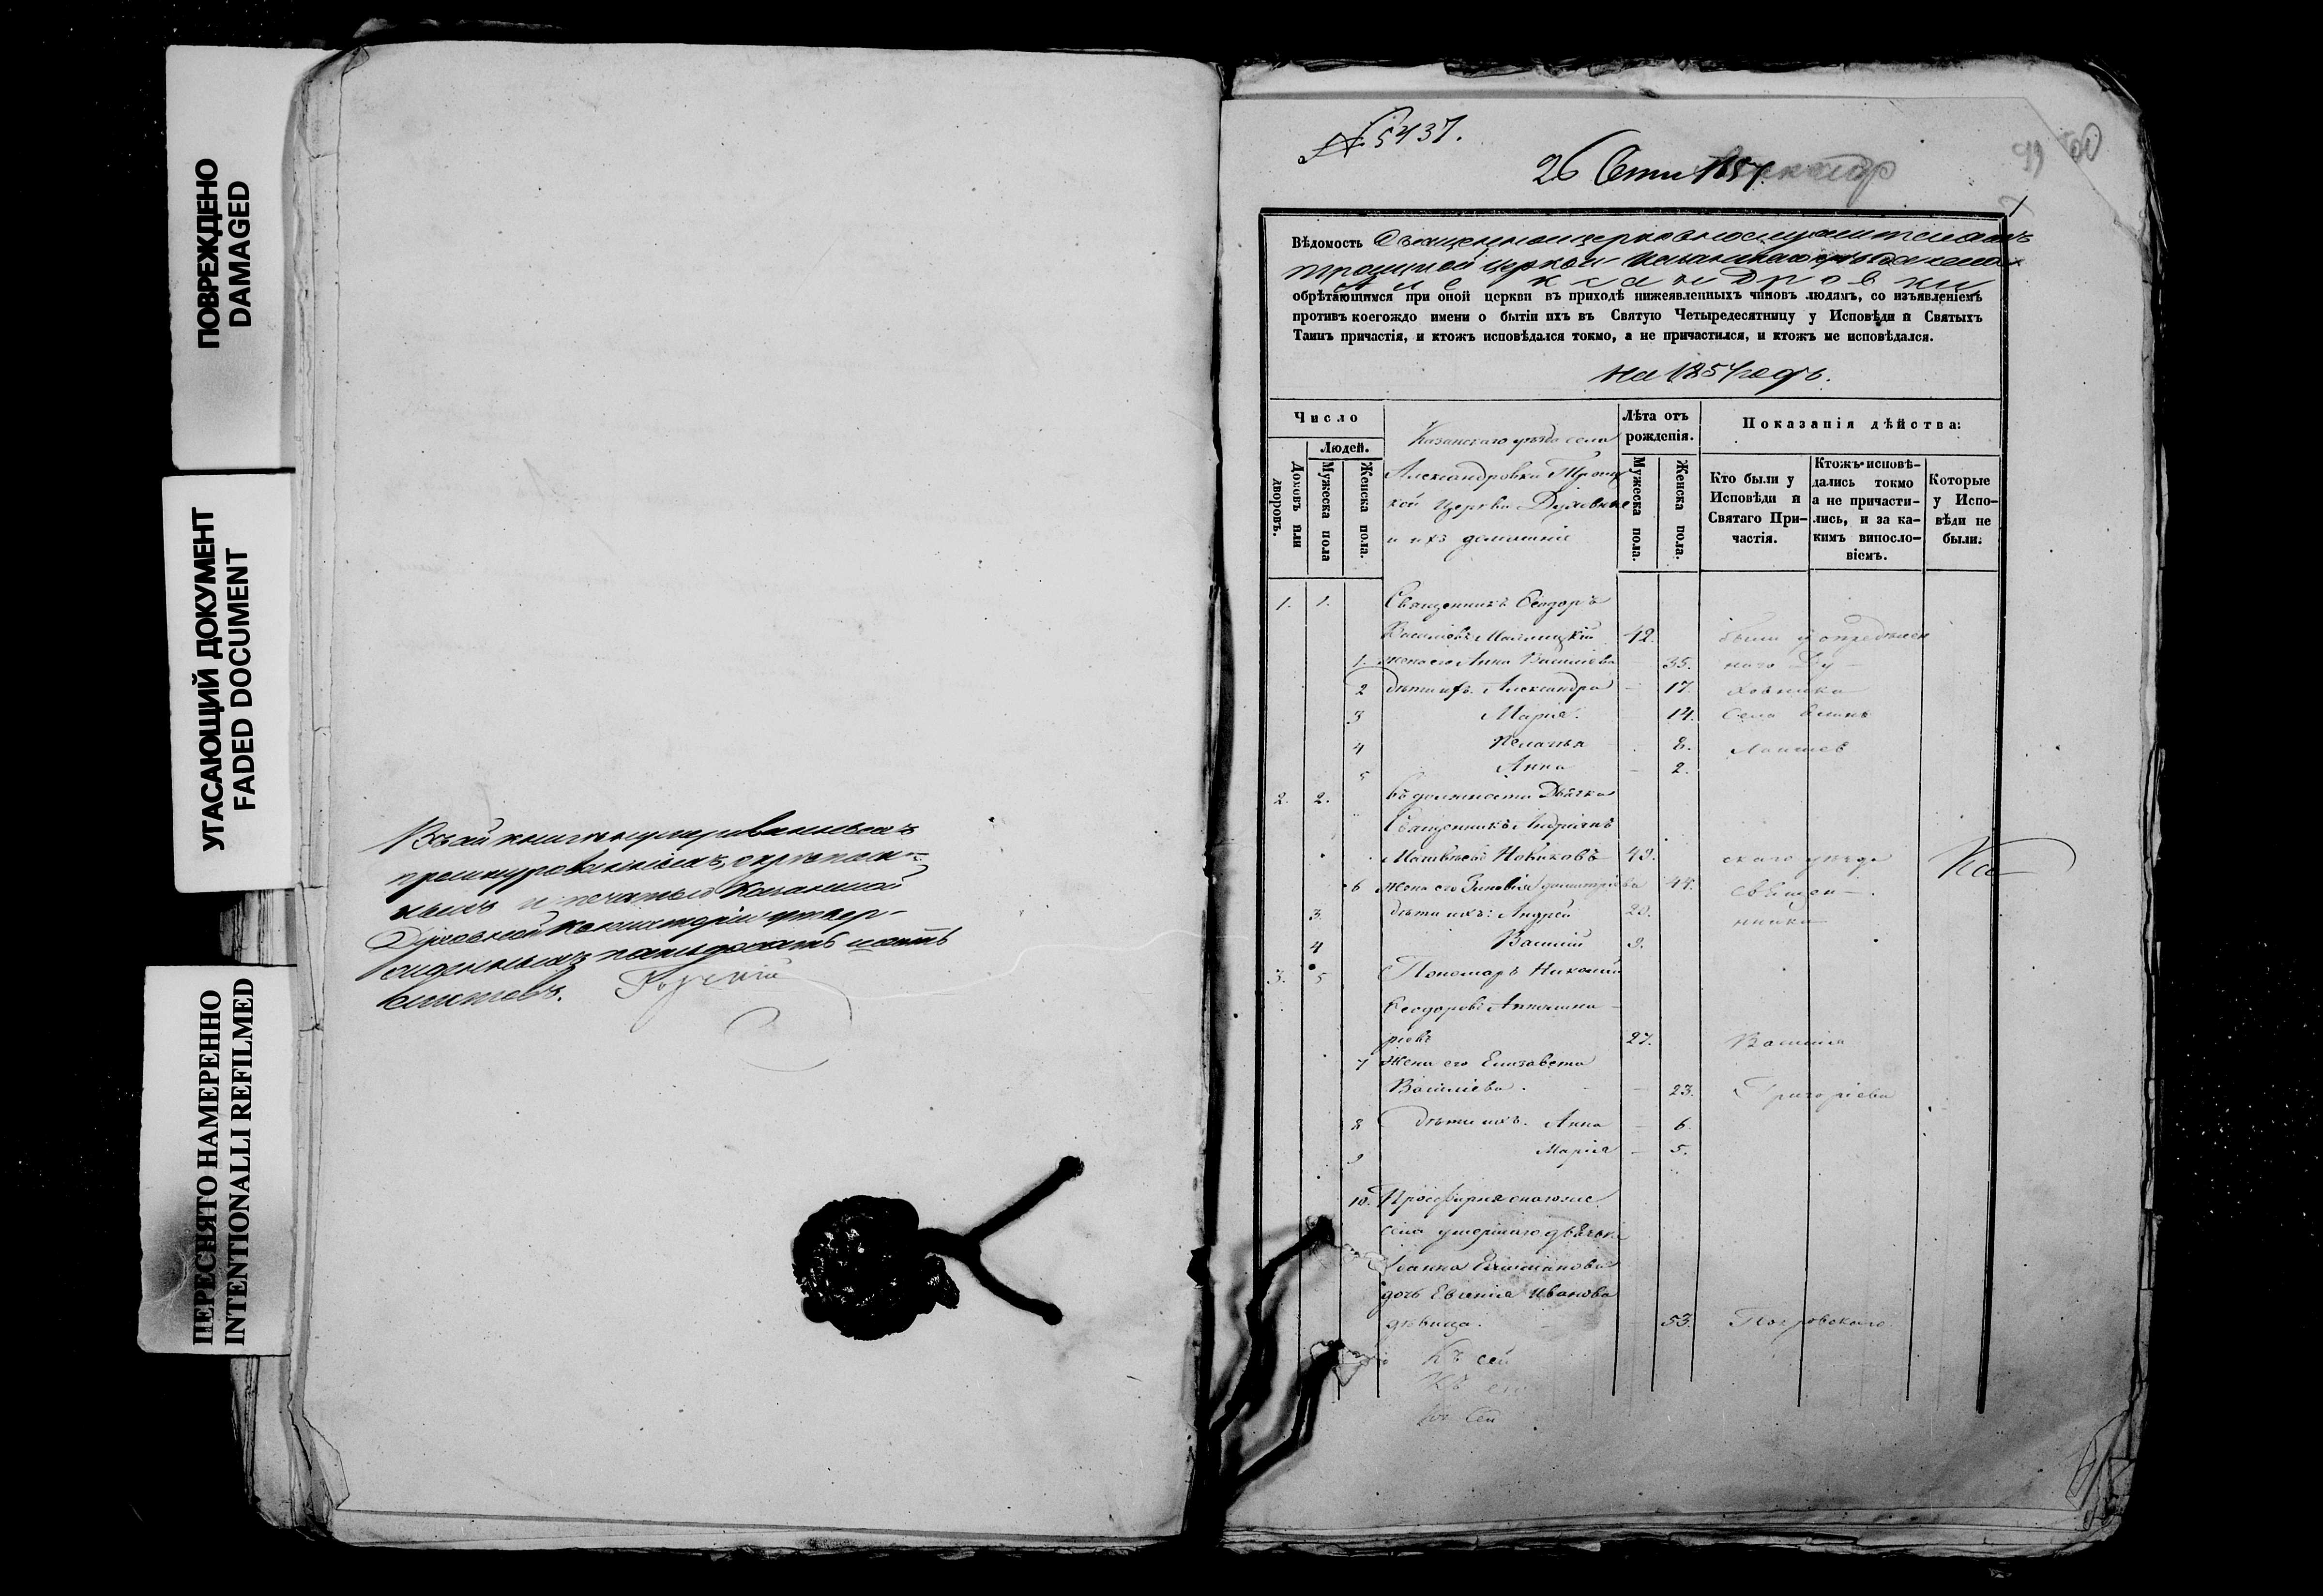 ПОВРЕЖДЕНО
DAMAGED
УГАСАЮЩИЙ ДОКУМЕНТ
FADED DOCUMENT
ПЕРЕСНЯТО НАМЕРЕННО
INTENTIONALLI REFILMED
Въ сей книге нумерованныхъ
прошнурованныхъ, скреплен-
ныхъ и печатью Казанской
Духовной Консисторіи утвер-
жденныхъ пятьдесятъ
листовъ.
№ 5437.
26 Сент 1857
Вѣдомость о священноцерковнослужителяхъ
Троицкой церкви Казанскаго уѣзда села
Александровки
обрѣтающимся при оной церкви въ приходѣ нижеявленныхъ чиновъ людямъ, со изъявленіемъ
противъ коегождо имени о бытіи ихъ въ Святую Четыредесятницу у Исповѣди и Святыхъ
Таинъ причастія, и ктожъ исповѣдался токмо, а не причастился, и ктожъ не исповѣдался.
на 1857 годъ.
Число
Людей.
Домовъ или дворовъ.
Мужеска пола
Женска пола.
Казанскаго уѣзда села
Александровки Троиц
кой церкви Духовные
и ихъ домашніе
Лѣта отъ рожденія.
Мужеска пола.
Женска пола.
Показанія дѣйства:
Кто были у Исповѣди и Святаго При-частія.
Ктожъ исповѣ-дались токмо а не причасти-лись, и за ка-кимъ винословіемъ.
Которые у Испо-вѣди не были.
1. 1. Священникъ Ѳеодоръ
Васильевъ 42. были у опредѣлен
1. жена его Анна Васильева 35. наго Ду-
2 дѣти ихъ: Александра 17. ховника
3 Марія 14. села
4 Пелагія 8. Лаишев
5 Анна 2.
2. 2. въ должности Дьячка
Священникъ Андріанъ
Матвѣевъ Новиковъ 49. скаго уѣзда Ка
6 жена его Зиновія Димитріева 44. священ-
3. дѣти ихъ: Андрей 20. ника
4 Василій 9.
3. 5 Пономарь Николай
Ѳеодоровъ Апполина-
ріевъ 27. Василія
7 жена его Елизавета
Васильева 23. Григоріева
8 Дѣти ихъ: Анна 6.
9 Марія 5.
10. Просвирня онагоже
села умершаго дьячка
Іоанна
дочь Евгенія Иванова
дѣвица. 53. Покровскаго
Къ сей
Къ сей
Къ сей